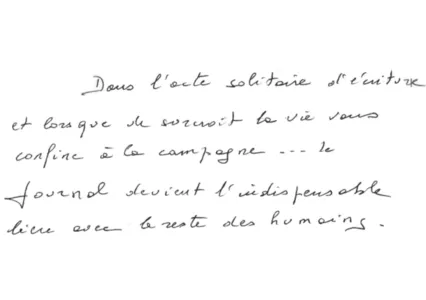 Dans l'acte solitaire d'écriture
et lorsque de surcroît la vie vous
confine à la campagne ... le
Journal devient l'indispensable
lien avec le reste des humains.